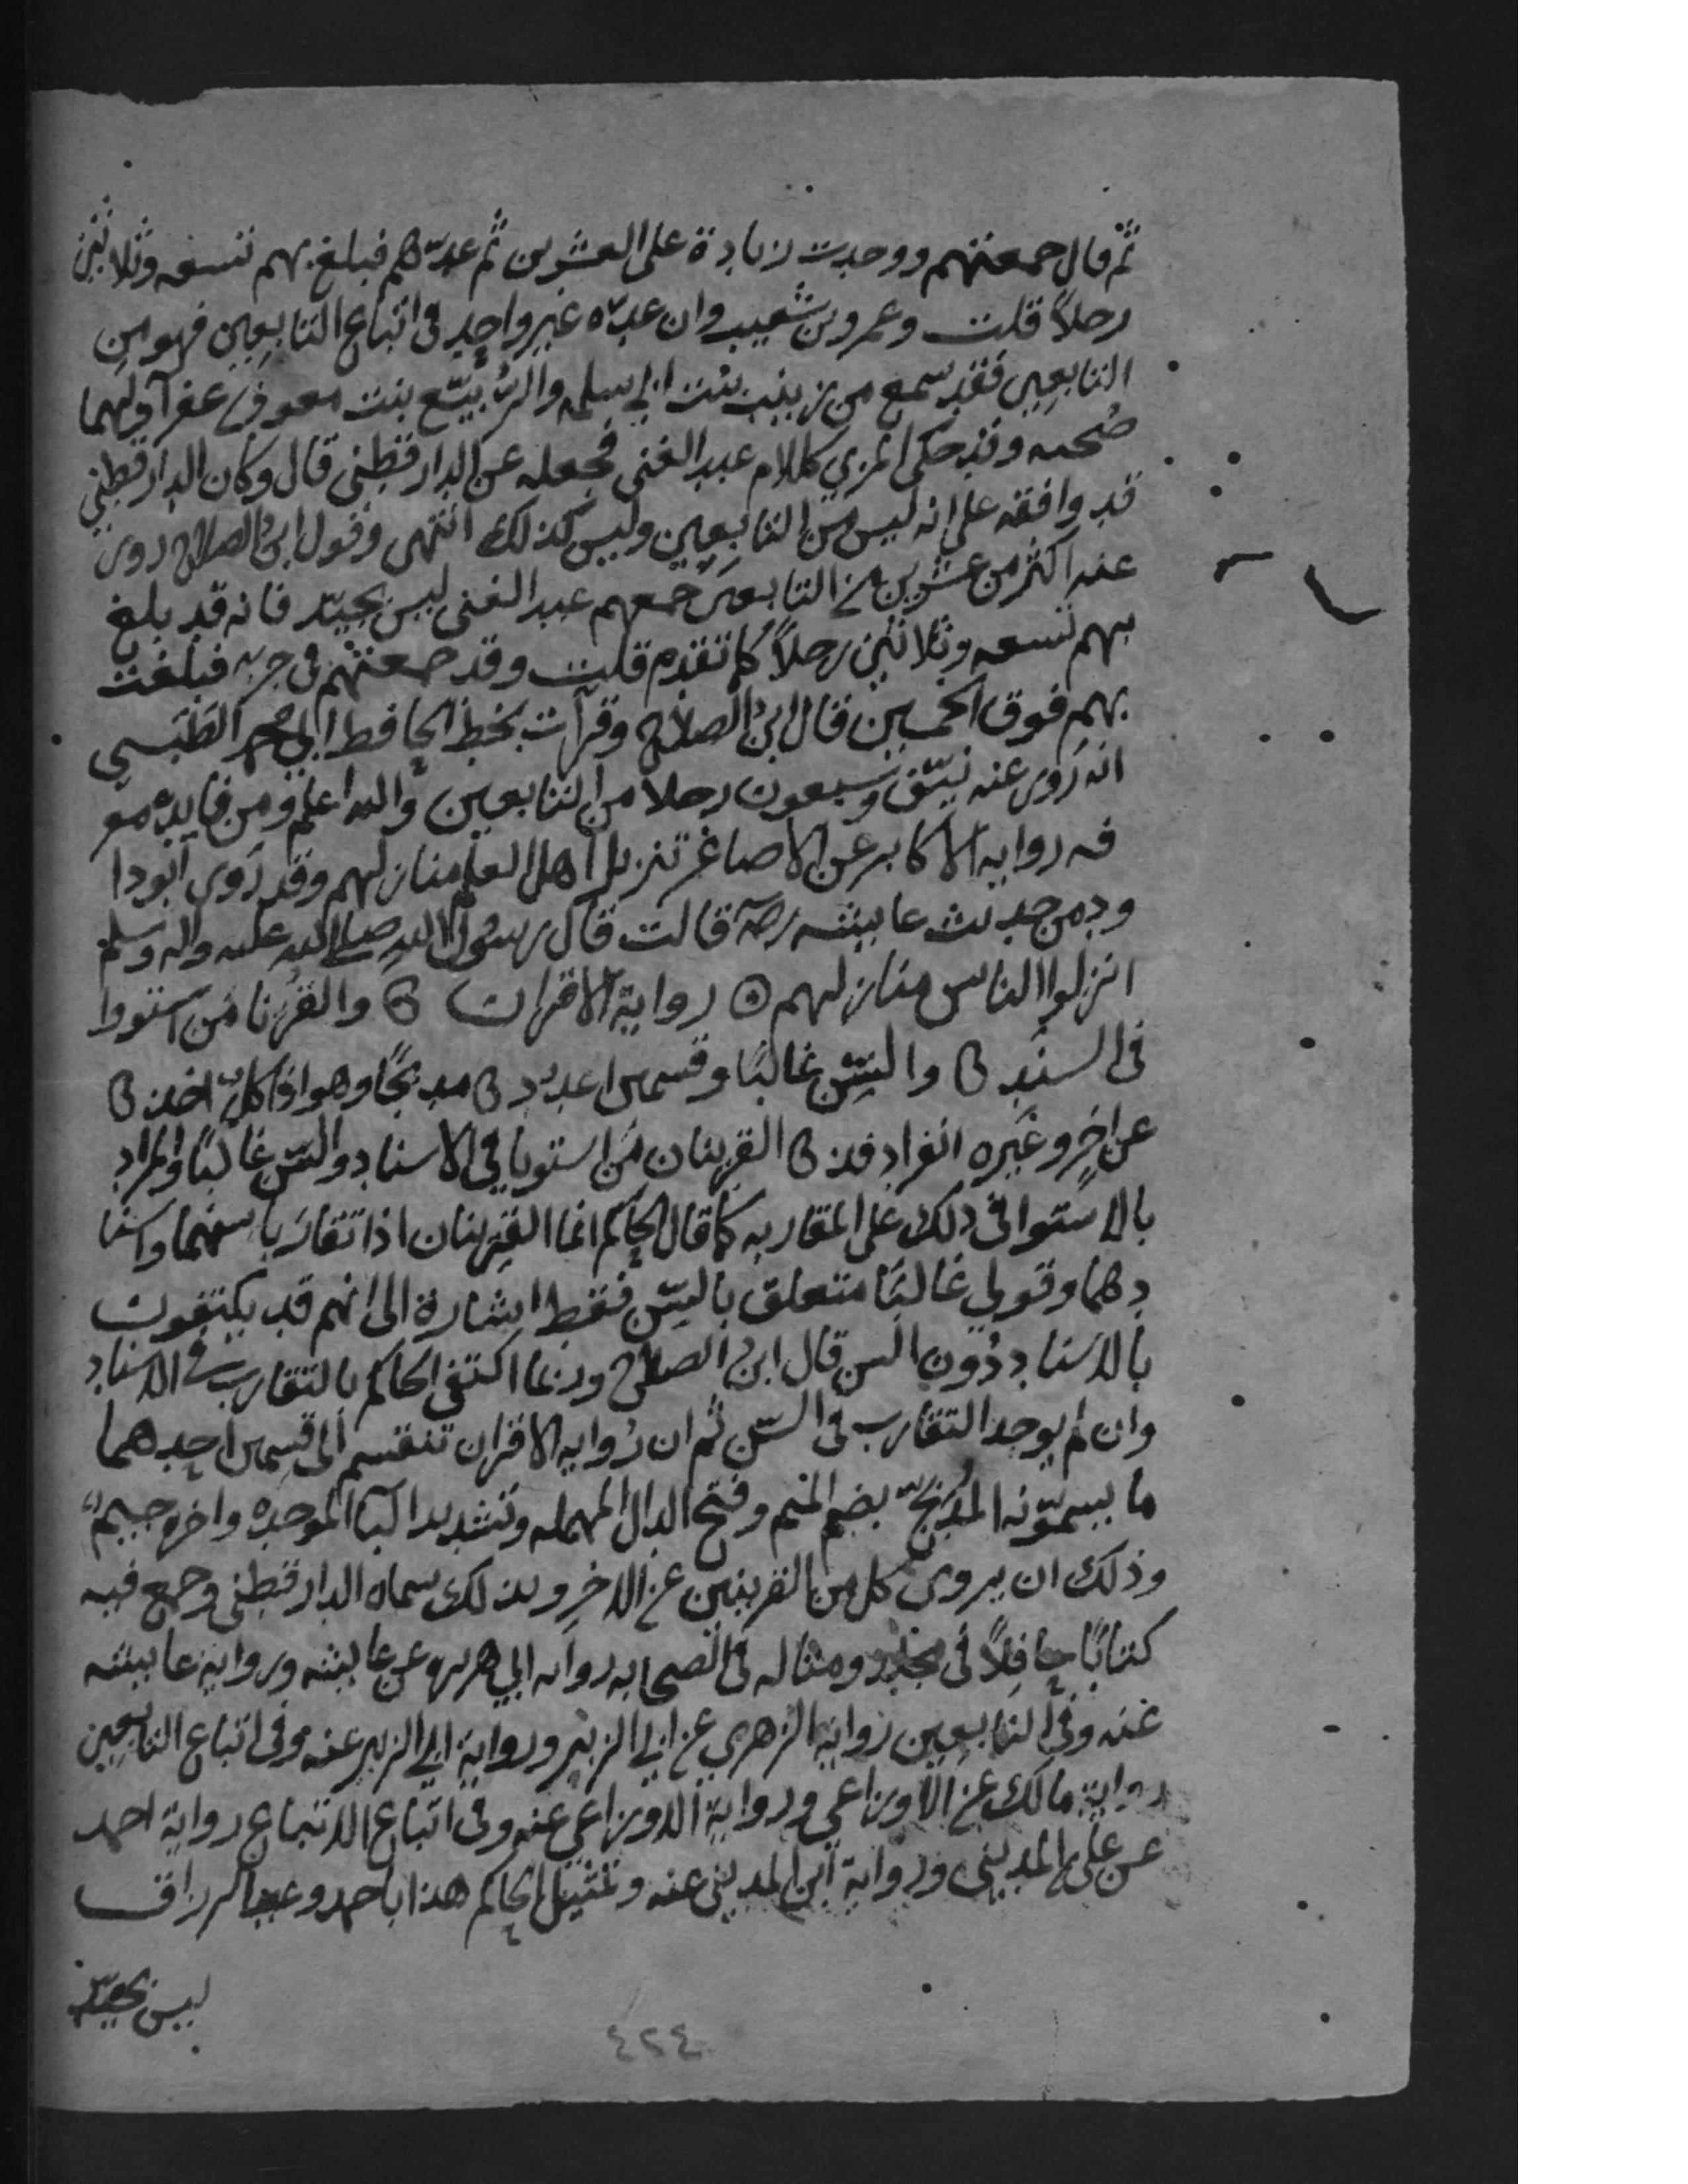 ثم قال جمعتهم ووجدت زيادة على العشرين ثم عدّهم فبلغ بهم تسعه وثلاثين
رجلاً قلت وعمرو بن شعيب وان عدّه غير واحد في اتباع التابعين فهو من
التابعين فقد سمع من زينب بنت ابي سلمه والرُّبيّع بنت معوذ بن عفرآ ولهما
صُحبه وقد حكى المزي كلام عبد الغني فجعله عن الدارقطني قال وكان الدارقطني
قد وافقه على انه ليس من التابعين وليس كذلك انتهى وقول ابن الصلاح روى
عنه اكثر من عشرين من التابعين جمعهم عبد الغني ليس بجيّد فانه قد بلغ
بهم تسعه وثلاثين رجلاً كما تقدم قلت وقد جمعتهم في جزء فبلغت
بهم فوق الخمسين قال ابن الصلاح وقرأت بخط الحافظ ابي محمد الطَبَسي
انه رَوى عنه نيّف وسبعون رجلا من التابعين والله اعلم ومن فايده معر
فه رواية الاكابر عن الاصاغر تنزيل اهل العلم منازلهم وقد رَوى ابو دا
ود من حديث عايشه رضه قالت قال رسُول الله صلى الله عليه واله وسلم
انزلوا الناس منازلهم ۞ رواية الاقران والقُرَنا مَن استووا
في السند والسّن غالبًا وقسمين اعدد مدبّجًا وهو اذا كلٌ اخذ
عن اخرٍ وغيره انفراد فذ القرينان مَن استويا في الاسناد والسّن غالبًا والمراد
بالاستوا في ذلك على المقاربه كما قال الحاكم انما القرينان اذا تقارَبا سنهما واسنا
دهما وقولي غالبًا متعلق بالسّن فقط اشارة الى انهم قد يكتفون
بالاسناد دُون السن قال ابن الصلاح وربما اكتفى الحاكم بالتقارب في الاسناد
وان لم يوجد التقارب في السّن ثم ان رُوايه الاقران تنقسم الى قسمين احدهما
ما يسمّونه المُدَبّج بضم الميم وفتح الدال المهمله وتشديد البآ الموحده واخره جيمٌ
وذلك ان يروى كل من القرينين عن الاخر وبذلك سماه الدارقطني وجمع فيه
كتابًا حافِلاً في مجلد ومثاله في الصحابه رواية ابي هريره عن عايشه ورواية عايشه
عنه وفي التابعين رواية الزهري عن ابي الزبير ورواية ابي الزبير عنه وفي اتباع التابعين
رواية مالك عن الاوزاعي ورواية الاوزاعي عنه وفي اتباع الاتباع رواية احمد
عن علي بن المديني ورواية ابن المديني عنه وتمثيل الحاكم هذا باحمد وعبد الرزاق
ليس بجيّد
٤٢٤